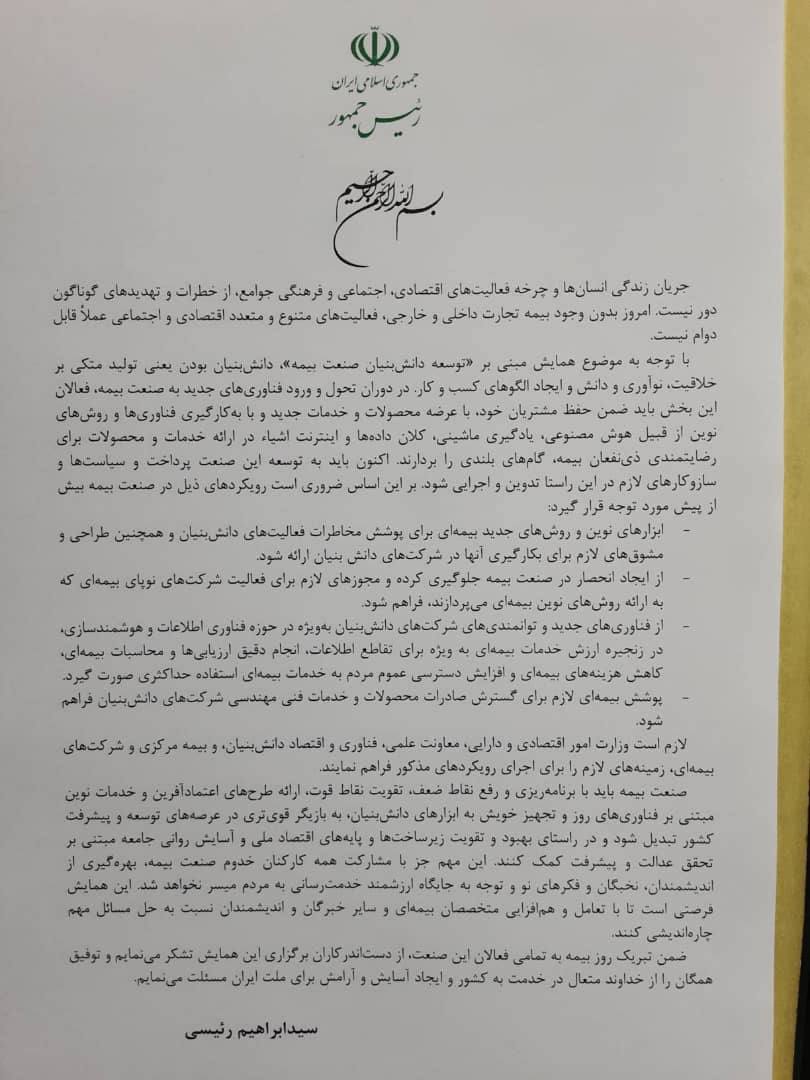 جمهوری اسلامی ایران
رئیس جمهور
بسم الله الرحمن الرحیم
جریان زندگی انسان‌ها و چرخه فعالیت‌های اقتصادی، اجتماعی و فرهنگی جوامع، از خطرات و تهدیدهای گوناگون
دور نیست. امروز بدون وجود بیمه تجارت داخلی و خارجی، فعالیت‌های متنوع و متعدد اقتصادی و اجتماعی عملاً قابل
دوام نیست.
با توجه به موضوع همایش مبنی بر «توسعه دانش‌بنیان صنعت بیمه»، دانش‌بنیان بودن یعنی تولید متکی بر
خلاقیت، نوآوری و دانش و ایجاد الگوهای کسب و کار. در دوران تحول و ورود فناوری‌های جدید به صنعت بیمه، فعالان
این بخش باید ضمن حفظ مشتریان خود، با عرضه محصولات و خدمات جدید و با به‌کارگیری فناوری‌ها و روش‌های
نوین از قبیل هوش مصنوعی، یادگیری ماشینی، کلان داده‌ها و اینترنت اشیاء در ارائه خدمات و محصولات برای
رضایتمندی ذی‌نفعان بیمه، گام‌های بلندی را بردارند. اکنون باید به توسعه این صنعت پرداخت و سیاست‌ها و
سازوکارهای لازم در این راستا تدوین و اجرایی شود. بر این اساس ضروری است رویکردهای ذیل در صنعت بیمه بیش
از پیش مورد توجه قرار گیرد:
- ابزارهای نوین و روش‌های جدید بیمه‌ای برای پوشش مخاطرات فعالیت‌های دانش‌بنیان و همچنین طراحی و
مشوق‌های لازم برای بکارگیری آنها در شرکت‌های دانش بنیان ارائه شود.
- از ایجاد انحصار در صنعت بیمه جلوگیری کرده و مجوزهای لازم برای فعالیت شرکت‌های نوپای بیمه‌ای که
به ارائه روش‌های نوین بیمه‌ای می‌پردازند، فراهم شود.
- از فناوری‌های جدید و توانمندی‌های شرکت‌های دانش‌بنیان به‌ویژه در حوزه فناوری اطلاعات و هوشمندسازی،
در زنجیره ارزش خدمات بیمه‌ای به ویژه برای تقاطع اطلاعات، انجام دقیق ارزیابی‌ها و محاسبات بیمه‌ای،
کاهش هزینه‌های بیمه‌ای و افزایش دسترسی عموم مردم به خدمات بیمه‌ای استفاده حداکثری صورت گیرد.
- پوشش بیمه‌ای لازم برای گسترش صادرات محصولات و خدمات فنی مهندسی شرکت‌های دانش‌بنیان فراهم
شود.
لازم است وزارت امور اقتصادی و دارایی، معاونت علمی، فناوری و اقتصاد دانش‌بنیان، و بیمه مرکزی و شرکت‌های
بیمه‌ای، زمینه‌های لازم را برای اجرای رویکردهای مذکور فراهم نمایند.
صنعت بیمه باید با برنامه‌ریزی و رفع نقاط ضعف، تقویت نقاط قوت، ارائه طرح‌های اعتمادآفرین و خدمات نوین
مبتنی بر فناوری‌های روز و تجهیز خویش به ابزارهای دانش‌بنیان، به بازیگر قوی‌تری در عرصه‌های توسعه و پیشرفت
کشور تبدیل شود و در راستای بهبود و تقویت زیرساخت‌ها و پایه‌های اقتصاد ملی و آسایش روانی جامعه مبتنی بر
تحقق عدالت و پیشرفت کمک کنند. این مهم جز با مشارکت همه کارکنان خدوم صنعت بیمه، بهره‌گیری از
اندیشمندان، نخبگان و فکرهای نو و توجه به جایگاه ارزشمند خدمت‌رسانی به مردم میسر نخواهد شد. این همایش
فرصتی است تا با تعامل و هم‌افزایی متخصصان بیمه‌ای و سایر خبرگان و اندیشمندان نسبت به حل مسائل مهم
چاره‌اندیشی کنند.
ضمن تبریک روز بیمه به تمامی فعالان این صنعت، از دست‌اندرکاران برگزاری این همایش تشکر می‌نمایم و توفیق
همگان را از خداوند متعال در خدمت به کشور و ایجاد آسایش و آرامش برای ملت ایران مسئلت می‌نمایم.
سیدابراهیم رئیسی